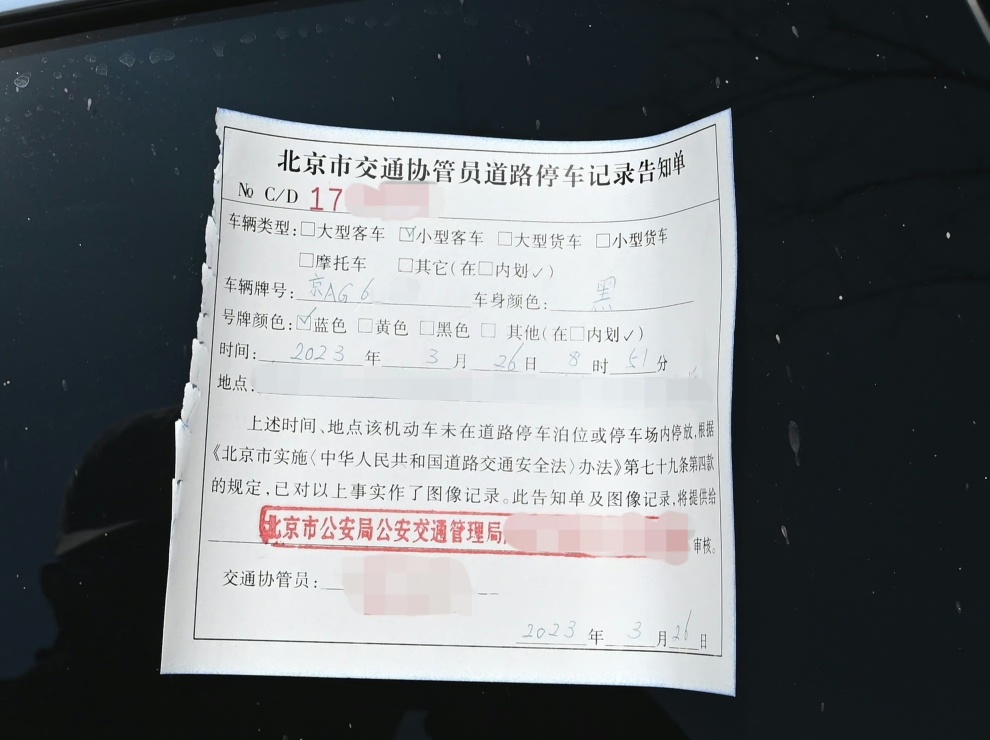 北京市交通协管员道路停车记录告知单
№ C/D 17
车辆类型:□大型客车 ☑小型客车 □大型货车 □小型货车
□摩托车 □其它(在□内划✓)
车辆牌号: 京AG6 车身颜色: 黑
号牌颜色:☑蓝色 □黄色 □黑色 □ 其他(在□内划✓)
时间: 2023 年 3 月 26 日 8 时 51 分
地点:
上述时间、地点该机动车未在道路停车泊位或停车场内停放,根据
《北京市实施〈中华人民共和国道路交通安全法〉办法》第七十九条第四款
的规定,已对以上事实作了图像记录。此告知单及图像记录,将提供给
北京市公安局公安交通管理局 审核。
交通协管员:
2023 年 3 月 26 日